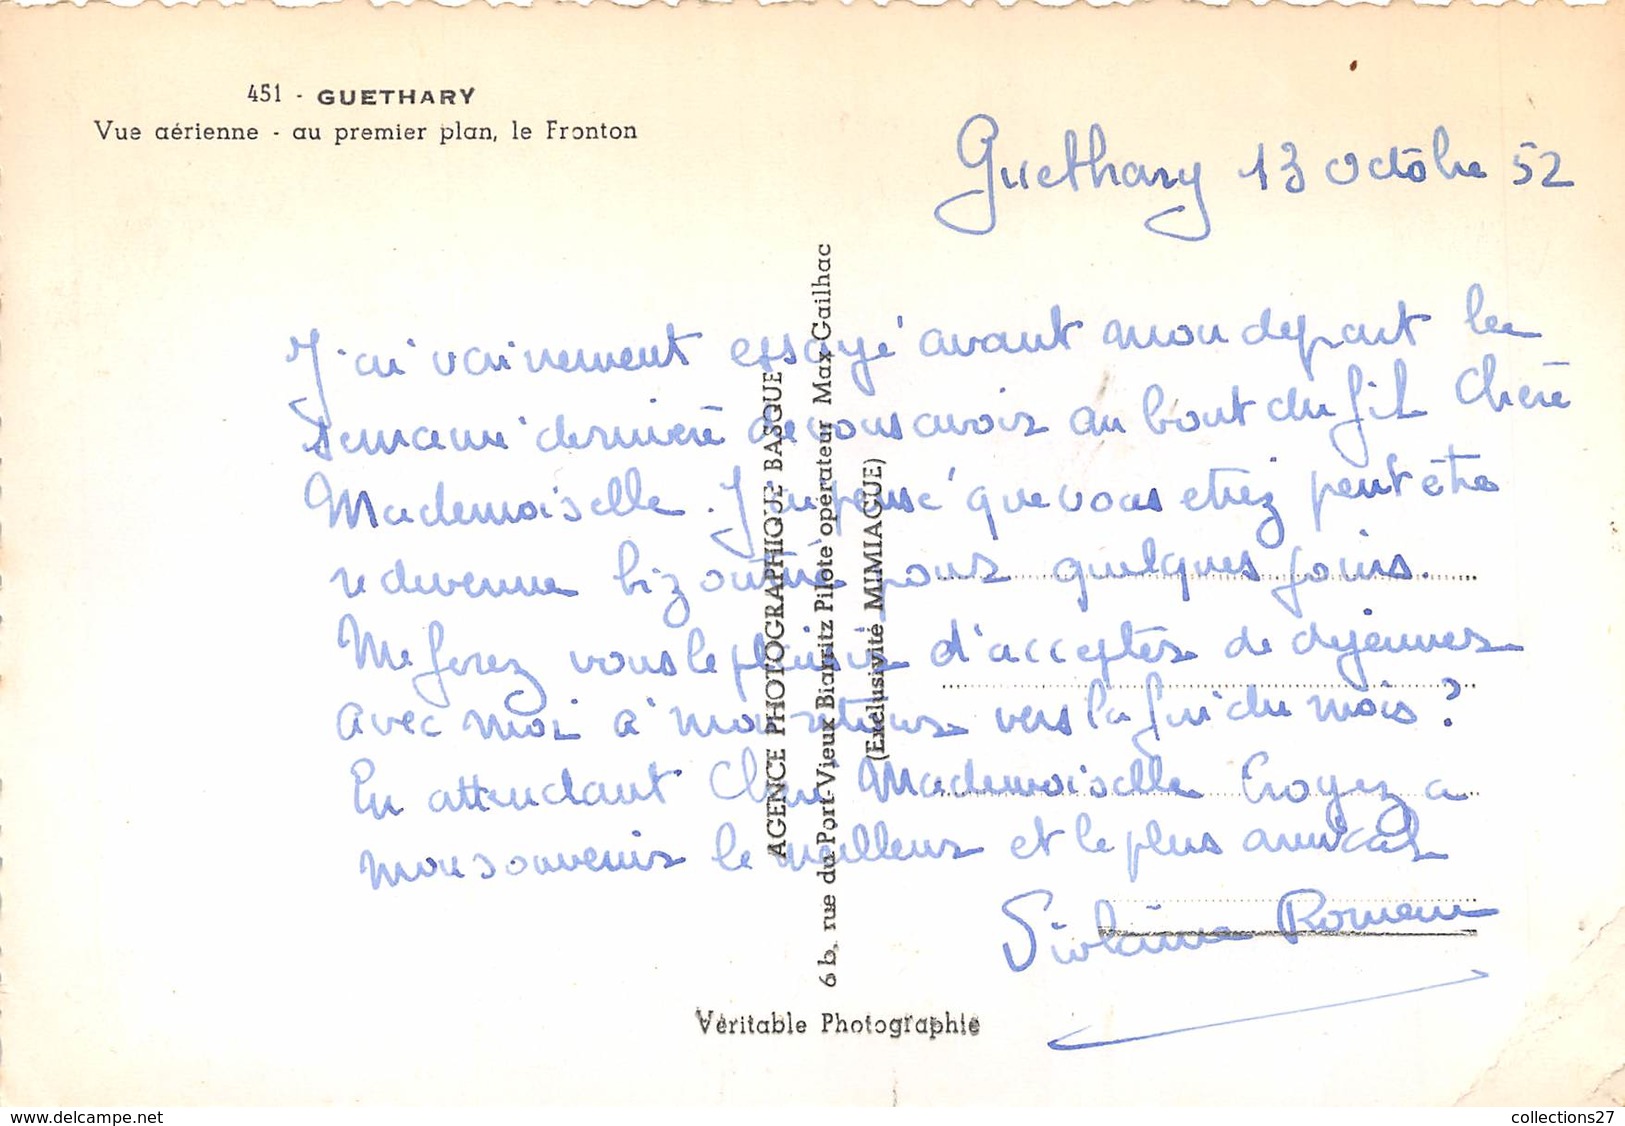 451 - GUETHARY
Vue aérienne - au premier plan, le Fronton
Guethary 13 Octobre 52
J'ai vainement essayé avant mon départ la
semaine dernière de vous avoir au bout du fil Chère
Mademoiselle. J'ai pensé que vous etiez peut être
redevenue pour quelques jours.
Me ferez vous le plaisir d'accepter de dejeuner
avec moi à mon retour vers la fin du mois?
En attendant Chère Mademoiselle Croyez a
mon souvenir le meilleur et le plus amical
Romain
AGENCE PHOTOGRAPHIQUE BASQUE
6 b, rue du Port-Vieux Biarritz Pilote opérateur Max Gailhac
(Exclusivité MIMIAGUE)
Véritable Photographie
www.delcampe.net
collections27